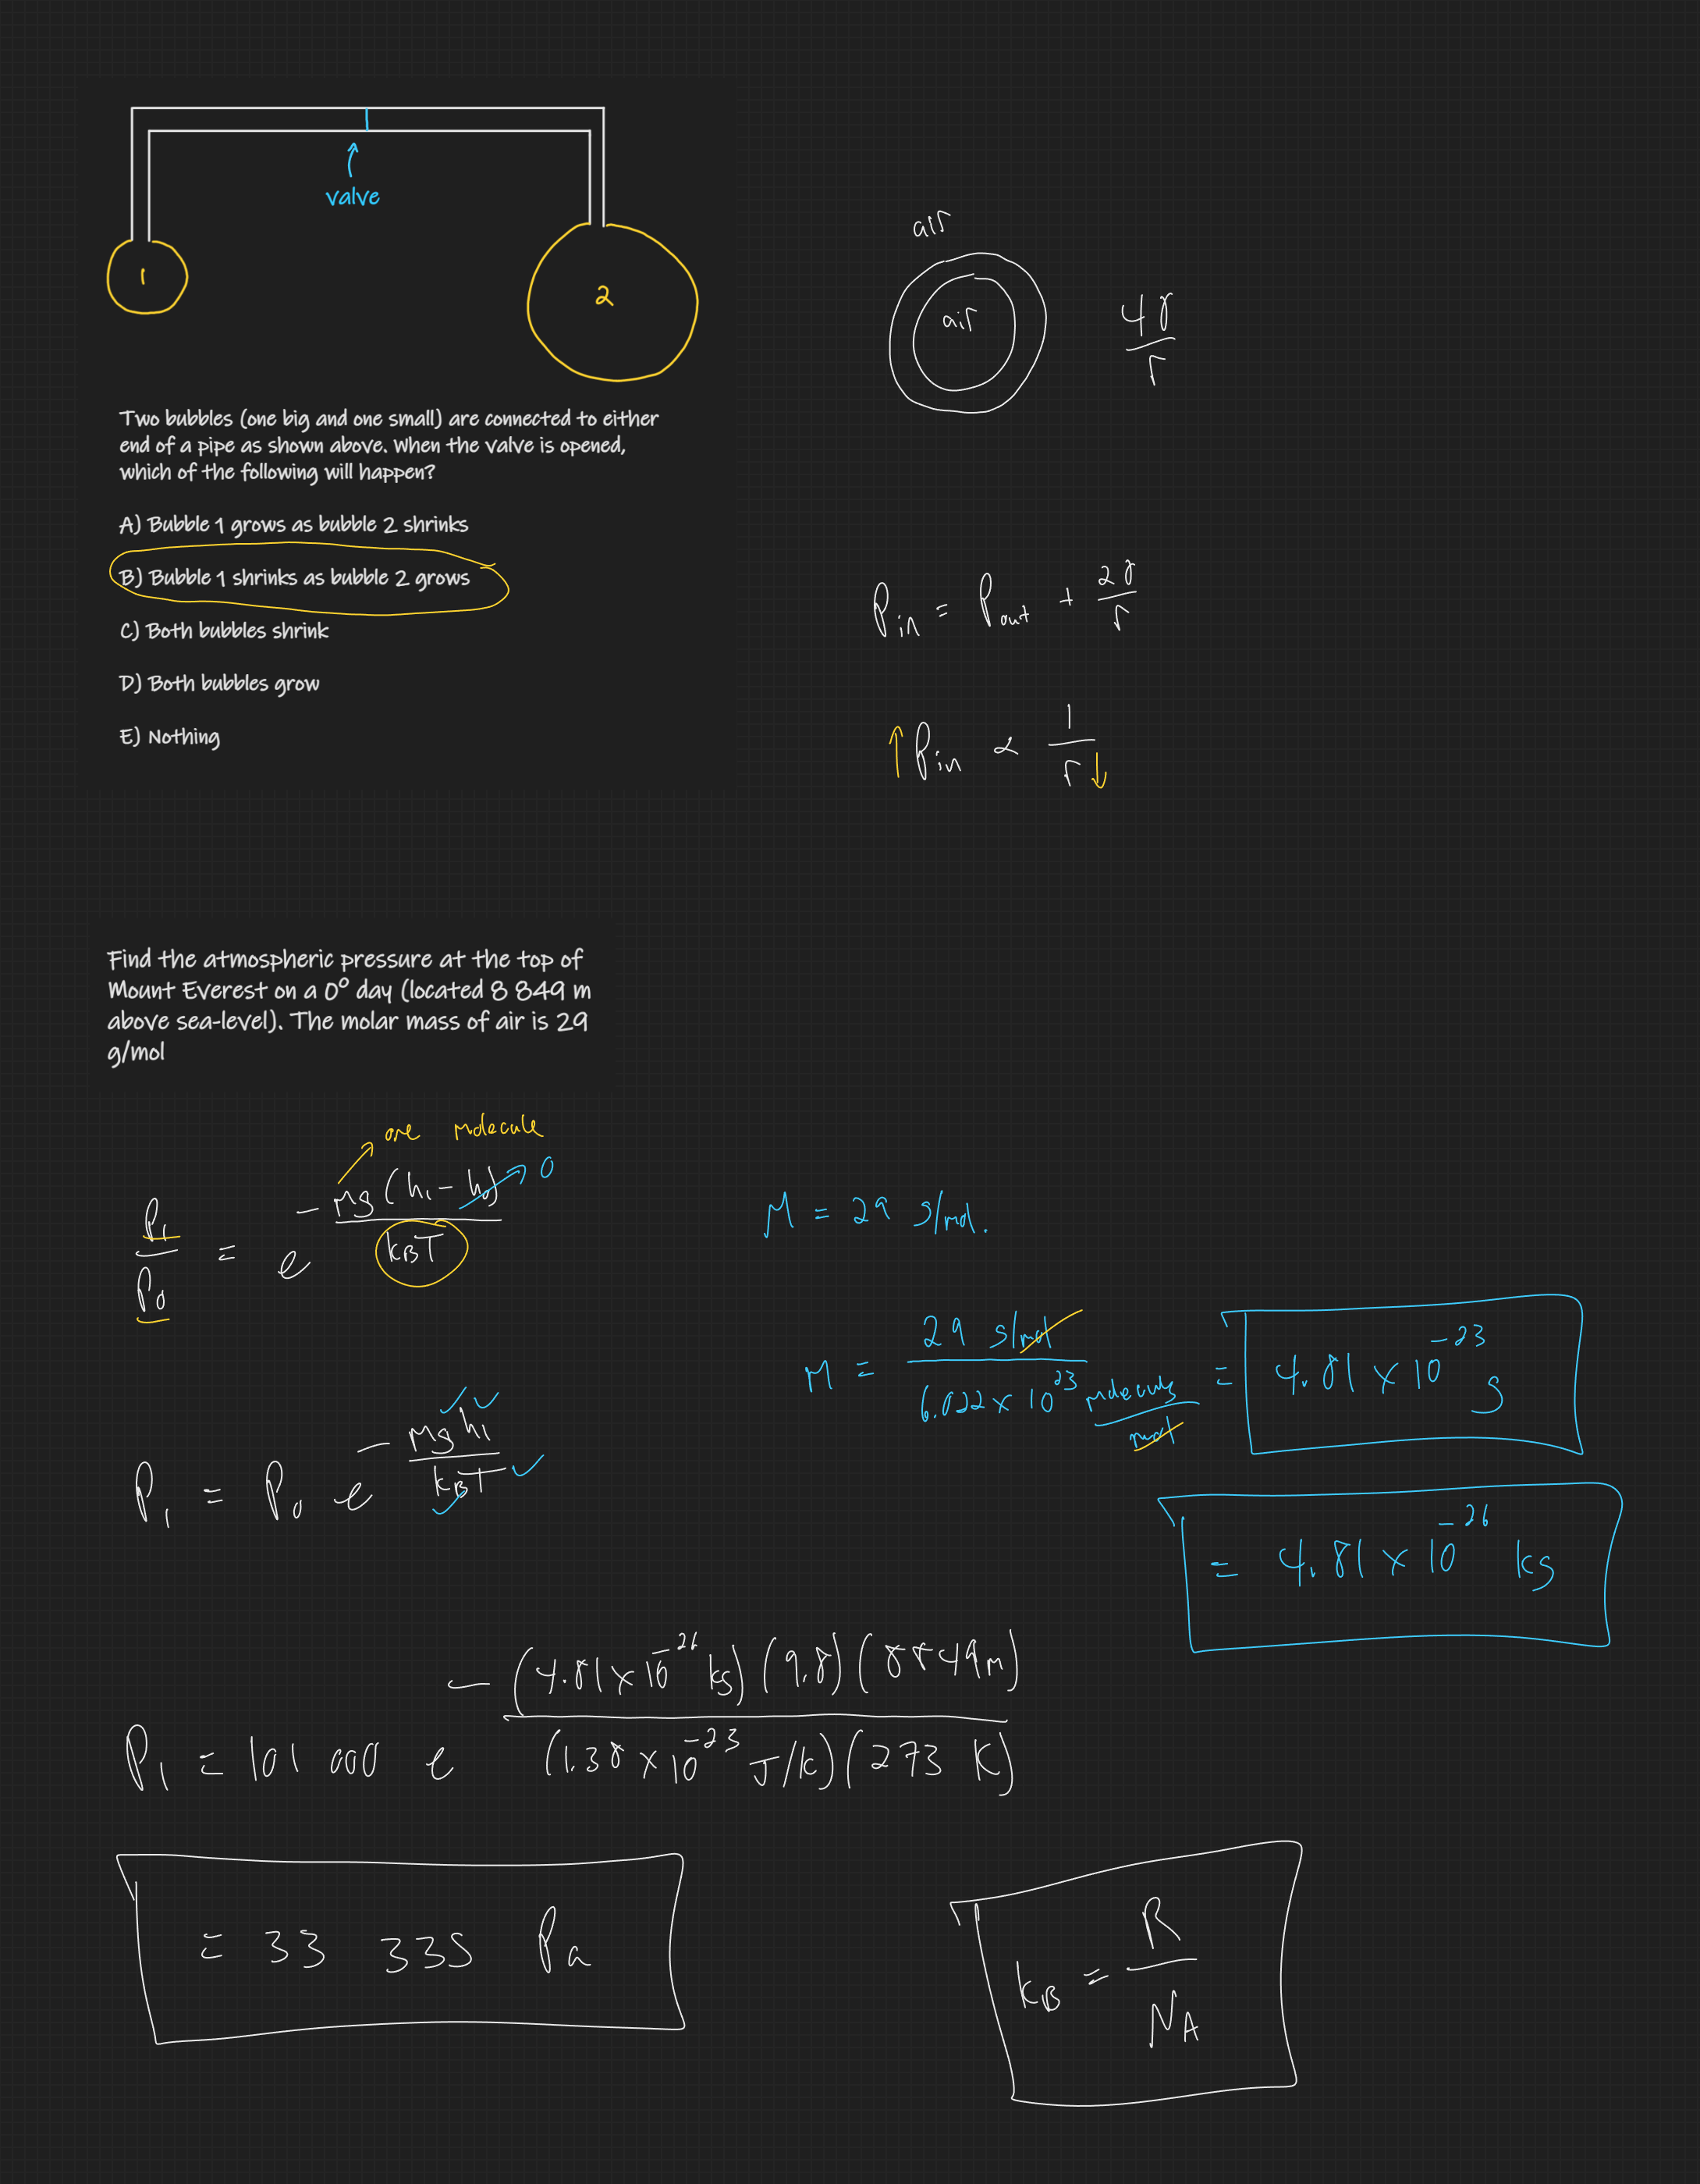 valve
1
2
air
air
4γ/r
Two bubbles (one big and one small) are connected to either
end of a pipe as shown above. When the valve is opened,
which of the following will happen?
A) Bubble 1 grows as bubble 2 shrinks
B) Bubble 1 shrinks as bubble 2 grows
C) Both bubbles shrink
D) Both bubbles grow
E) Nothing
P_in = P_out + 2γ/r
↑ P_in ∝ 1/r ↓
Find the atmospheric pressure at the top of
Mount Everest on a 0° day (located 8 849 m
above sea-level). The molar mass of air is 29
g/mol
one molecule
P₁/P₀ = e^(-Mg(h₁ - h₀)/k_BT) → 0
M = 29 g/mol.
M = 29 g/mol / 6.022 × 10^23 molecules/mol = 4.81 × 10^-23 g
= 4.81 × 10^-26 kg
P₁ = P₀ e^(-Mgh₁/k_BT)
P₁ = 101 000 e^(-(4.81 × 10^-26 kg)(9.8)(8849m)/(1.38 × 10^-23 J/K)(273 K))
= 33 335 Pa
k_B = R/N_A